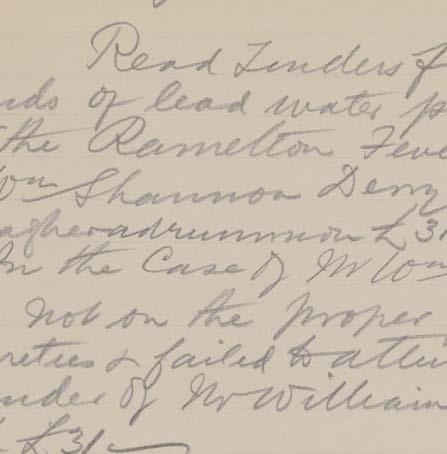 Read Tenders f
nds of lead water p
the Ramelton Feve
Wm Shannon Derry
agheradrummon £31
In the Case of Mr Wm
not on the proper
reties & failed to atten
nder of Mr William
£31